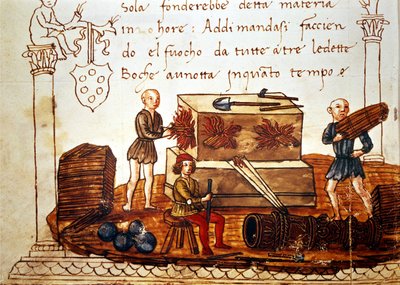 sola fonderebbe detta materia
in 2 hore: Addimandasi faccien
do el fuocho da tutte a tre le dette
Boche aunotta inquato tempo e